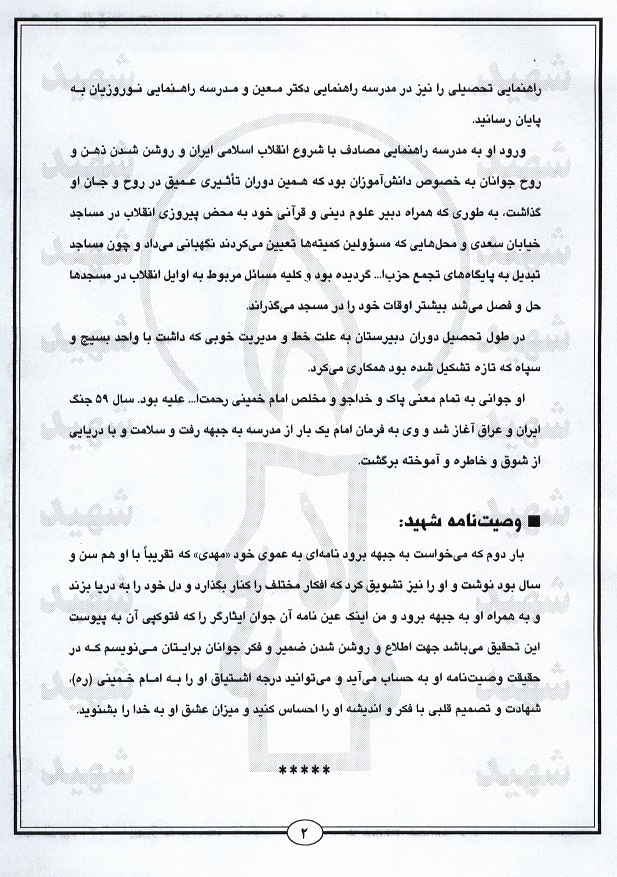 راهنمایی تحصیلی را نیز در مدرسه راهنمایی دکتر معین و مدرسه راهنمایی نوروزیان به
پایان رسانید.
ورود او به مدرسه راهنمایی مصادف با شروع انقلاب اسلامی ایران و روشن شدن ذهن و
روح جوانان به خصوص دانش‌آموزان بود که همین دوران تأثیری عمیق در روح و جان او
گذاشت، به طوری که همراه دبیر علوم دینی و قرآنی خود به محض پیروزی انقلاب در مساجد
خیابان سعدی و محل‌هایی که مسؤولین کمیته‌ها تعیین می‌کردند نگهبانی می‌داد و چون مساجد
تبدیل به پایگاه‌های تجمع حزب‌ا... گردیده بود و کلیه مسائل مربوط به اوایل انقلاب در مسجدها
حل و فصل می‌شد بیشتر اوقات خود را در مسجد می‌گذراند.
در طول تحصیل دوران دبیرستان به علت خط و مدیریت خوبی که داشت با واحد بسیج و
سپاه که تازه تشکیل شده بود همکاری می‌کرد.
او جوانی به تمام معنی پاک و خداجو و مخلص امام خمینی رحمت‌ا... علیه بود. سال ۵۹ جنگ
ایران و عراق آغاز شد و وی به فرمان امام یک بار از مدرسه به جبهه رفت و سلامت و با دریایی
از شوق و خاطره و آموخته برگشت.
■ وصیت‌نامه شهید:
بار دوم که می‌خواست به جبهه برود نامه‌ای به عموی خود «مهدی» که تقریباً با او هم سن و
سال بود نوشت و او را نیز تشویق کرد که افکار مختلف را کنار بگذارد و دل خود را به دریا بزند
و به همراه او به جبهه برود و من اینک عین نامه آن جوان ایثارگر را که فتوکپی آن به پیوست
این تحقیق می‌باشد جهت اطلاع و روشن شدن ضمیر و فکر جوانان برایتان می‌نویسم که در
حقیقت وصیت‌نامه او به حساب می‌آید و می‌توانید درجه اشتیاق او را به امام خمینی (ره)،
شهادت و تصمیم قلبی با فکر و اندیشه او را احساس کنید و میزان عشق او به خدا را بشنوید.
*****
۲
شهید شهید
شهید شهید
شهید شهید
شهید شهید
شهید شهید
شهید شهید
شهید شهید
شهید شهید
شهید شهید